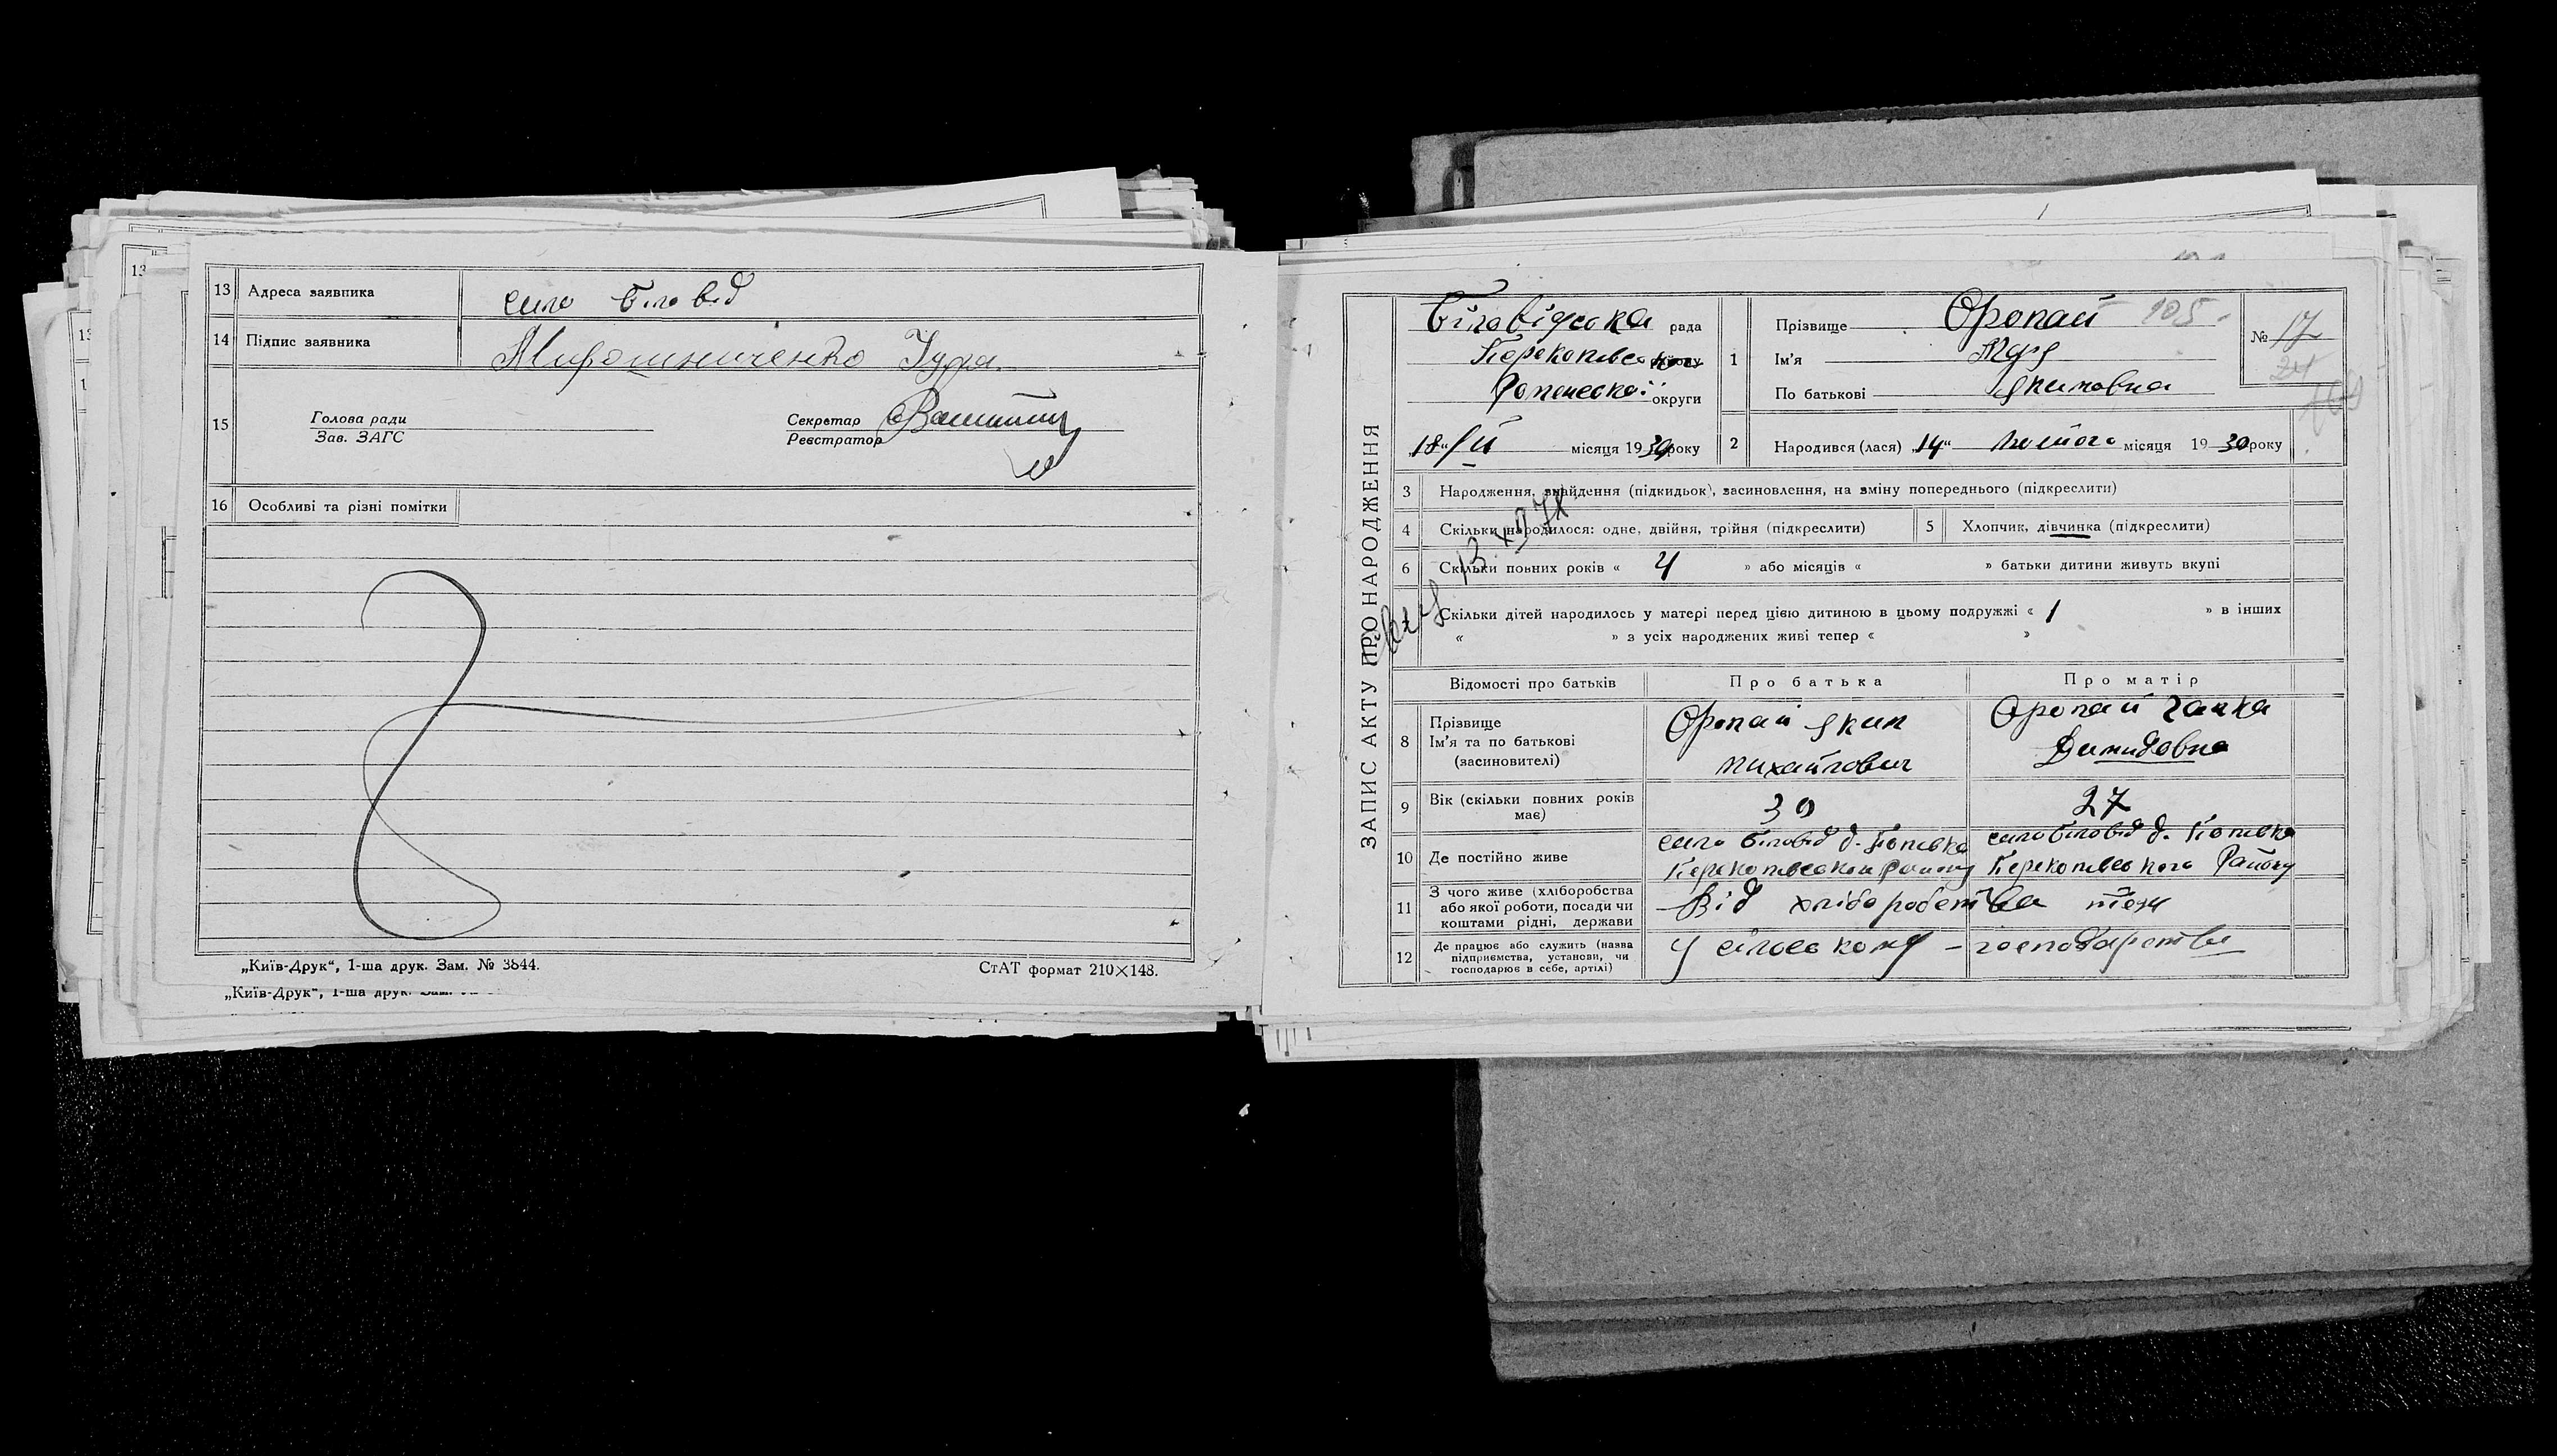 13 Адреса заявника село Біловід
14 Підпис заявника Мирошниченко
15 Голова ради Секретар
Зав. ЗАГС Реєстратор
16 Особливі та різні помітки
„Київ-Друк“, 1-ша друк. Зам. № 3844. СтАТ формат 210×148.
„Київ-Друк“, 1-ша друк.
ЗАПИС АКТУ ПРО НАРОДЖЕННЯ
Біловідська рада
Перекопівсько
Роменської округи
„18“ II місяця 1930 року
1 Прізвище Оропай 105
Ім'я Марія
По батькові Якимовна
№ 17
24
2 Народився (лася) „14“ лютого місяця 1930 року
3 Народження, знайдення (підкидьок), засиновлення, на зміну попереднього (підкреслити)
4 Скільки народилося: одне, двійня, трійня (підкреслити) 5 Хлопчик, дівчинка (підкреслити)
6 Скільки повних років « 4 » або місяців « » батьки дитини живуть вкупі
Скільки дітей народилось у матері перед цією дитиною в цьому подружжі « 1 » в інших
« » з усіх народжених живі тепер « »
Відомості про батьків Про батька Про матір
8 Прізвище Ім'я та по батькові (засиновителі) Оропай Яким Михайлович Оропай Ганка Демидовна
9 Вік (скільки повних років має) 30 27
10 Де постійно живе село Біловід д. Попівка Перекопівського Району село Біловід д. Попівка Перекопівського Району
11 З чого живе (хліборобства або якої роботи, посади чи коштами рідні, держави Від хліборобства теж
12 Де працює або служить (назва підприємства, установи, чи господарює в себе, артілі) У сільському – господарстві